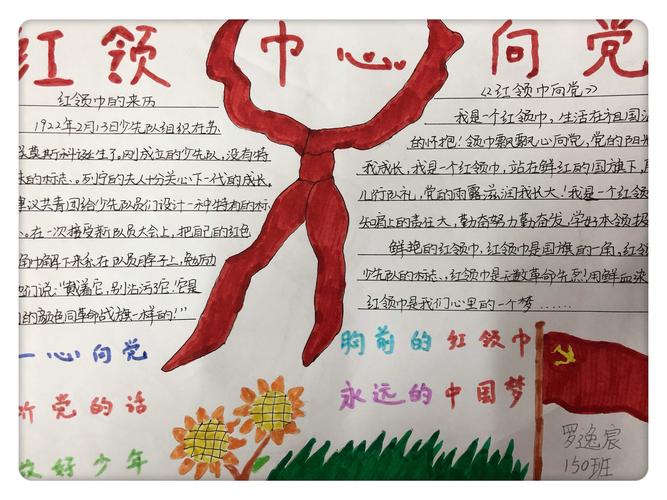 红领巾心向党
红领巾的来历
1922年2月13日少先队组织在苏
莫斯科诞生了。刚成立的少先队,没有特
殊的标志。列宁的夫人十分关心下一代的成长,
建议共青团给少先队员们设计一种特有的标
志。在一次接受新队员大会上,把自己的红色
角巾解下来系在队员脖子上,勉励
他们说:“戴着它,别沾污它!它是
的颜色同革命战旗一样的!”
一心向党
听党的话
做好少年
《红领巾向党》
我是一个红领巾,生活在祖国
的怀抱!领巾飘飘心向党,党的阳光
我成长,我是一个红领巾,站在鲜红的国旗下,
儿行队礼,党的雨露滋润我长大!我是一个红领
知肩上的责任大,勤奋努力勤奋发,学好本领报
鲜艳的红领巾,红领巾是国旗的一角,红领
少先队的标志,红领巾是无数革命先烈!用鲜血染
红领巾是我们心里的一个梦……
胸前的红领巾
永远的中国梦
罗逸宸
150班